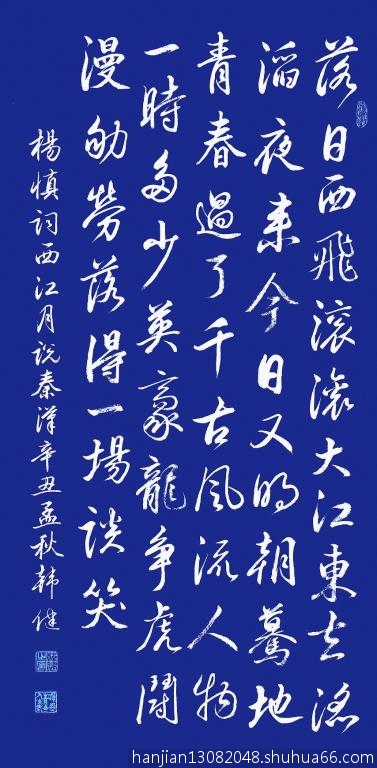 落日西飛滾滾大江東去滔
滔夜来今日又明朝驀地
青春過了千古風流人物
一時多少英豪龍爭虎鬪
漫劬勞落得一場談笑
楊慎詞西江月說秦漢辛丑孟秋韓健
hanjian13082048.shuhua66.com